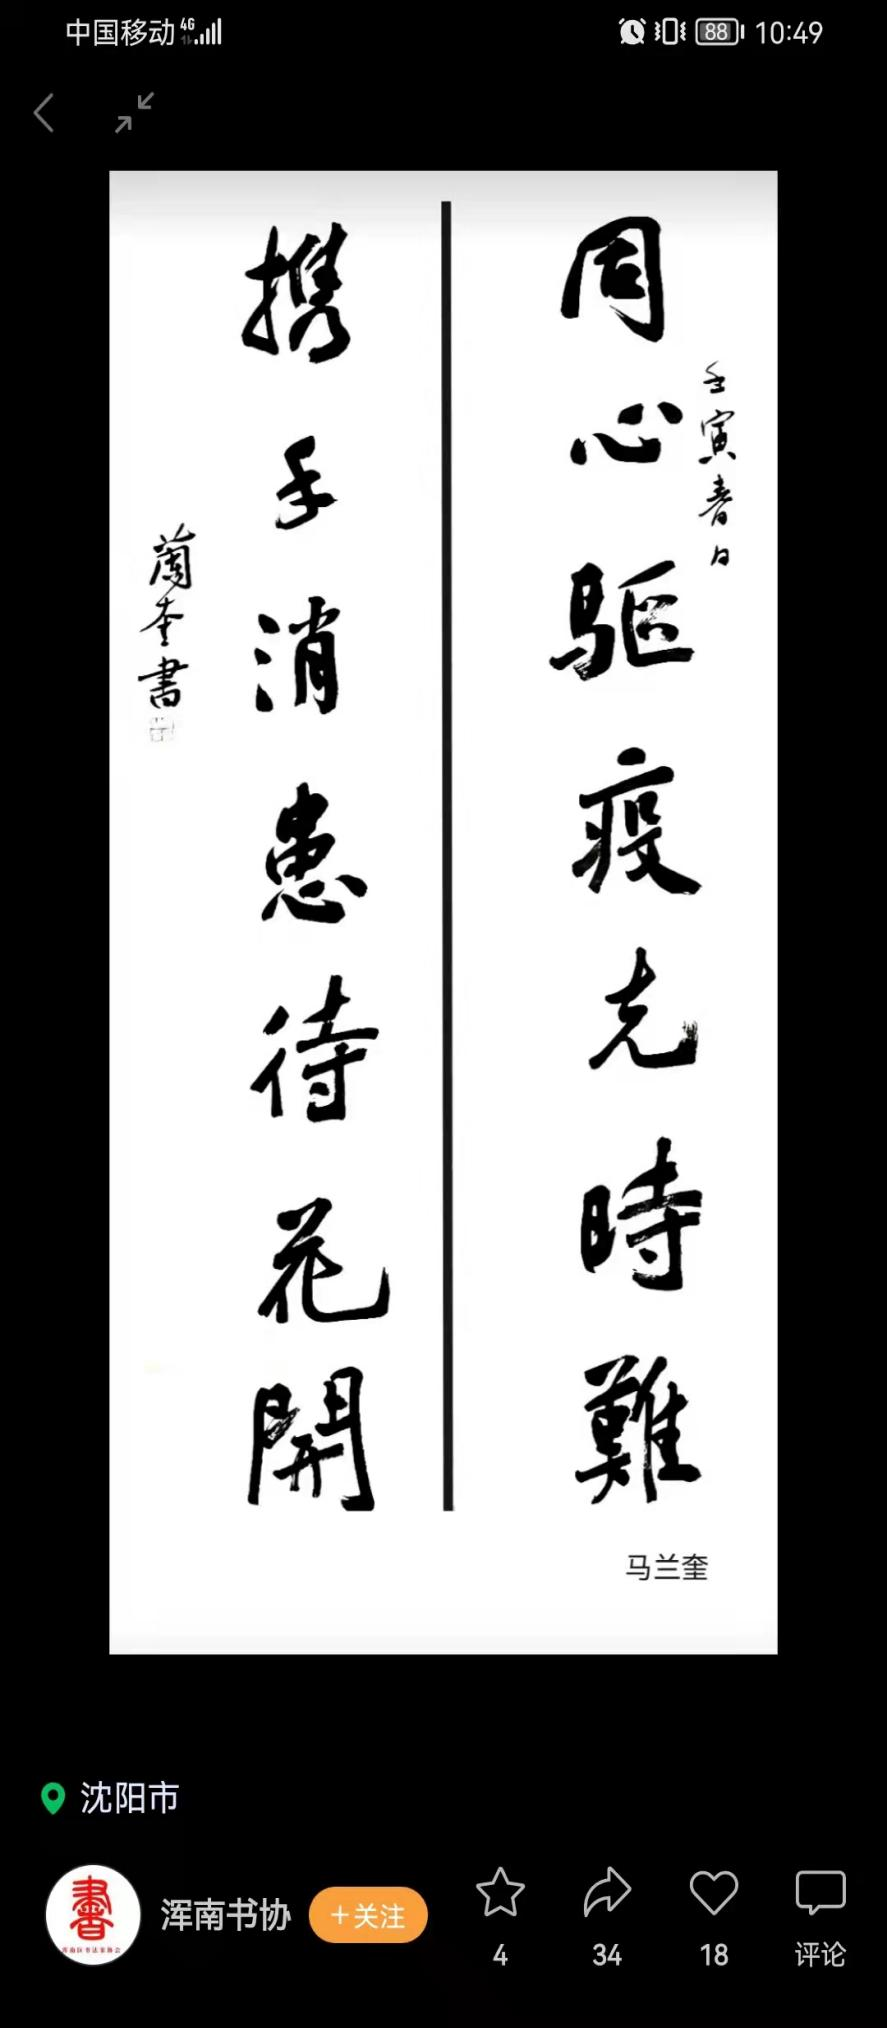 中国移动 4G 88 10:49
同心驱疫克時難
壬寅春日
携手消患待花開
蘭奎書
马兰奎
沈阳市
書
浑南区书法家协会
浑南书协
+关注
4
34
18
评论